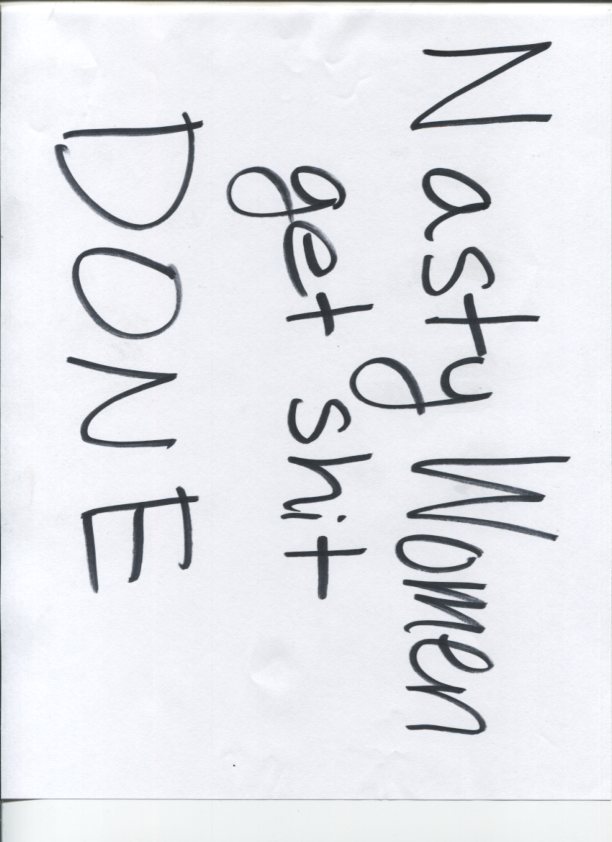 Nasty Women
get shit
DONE